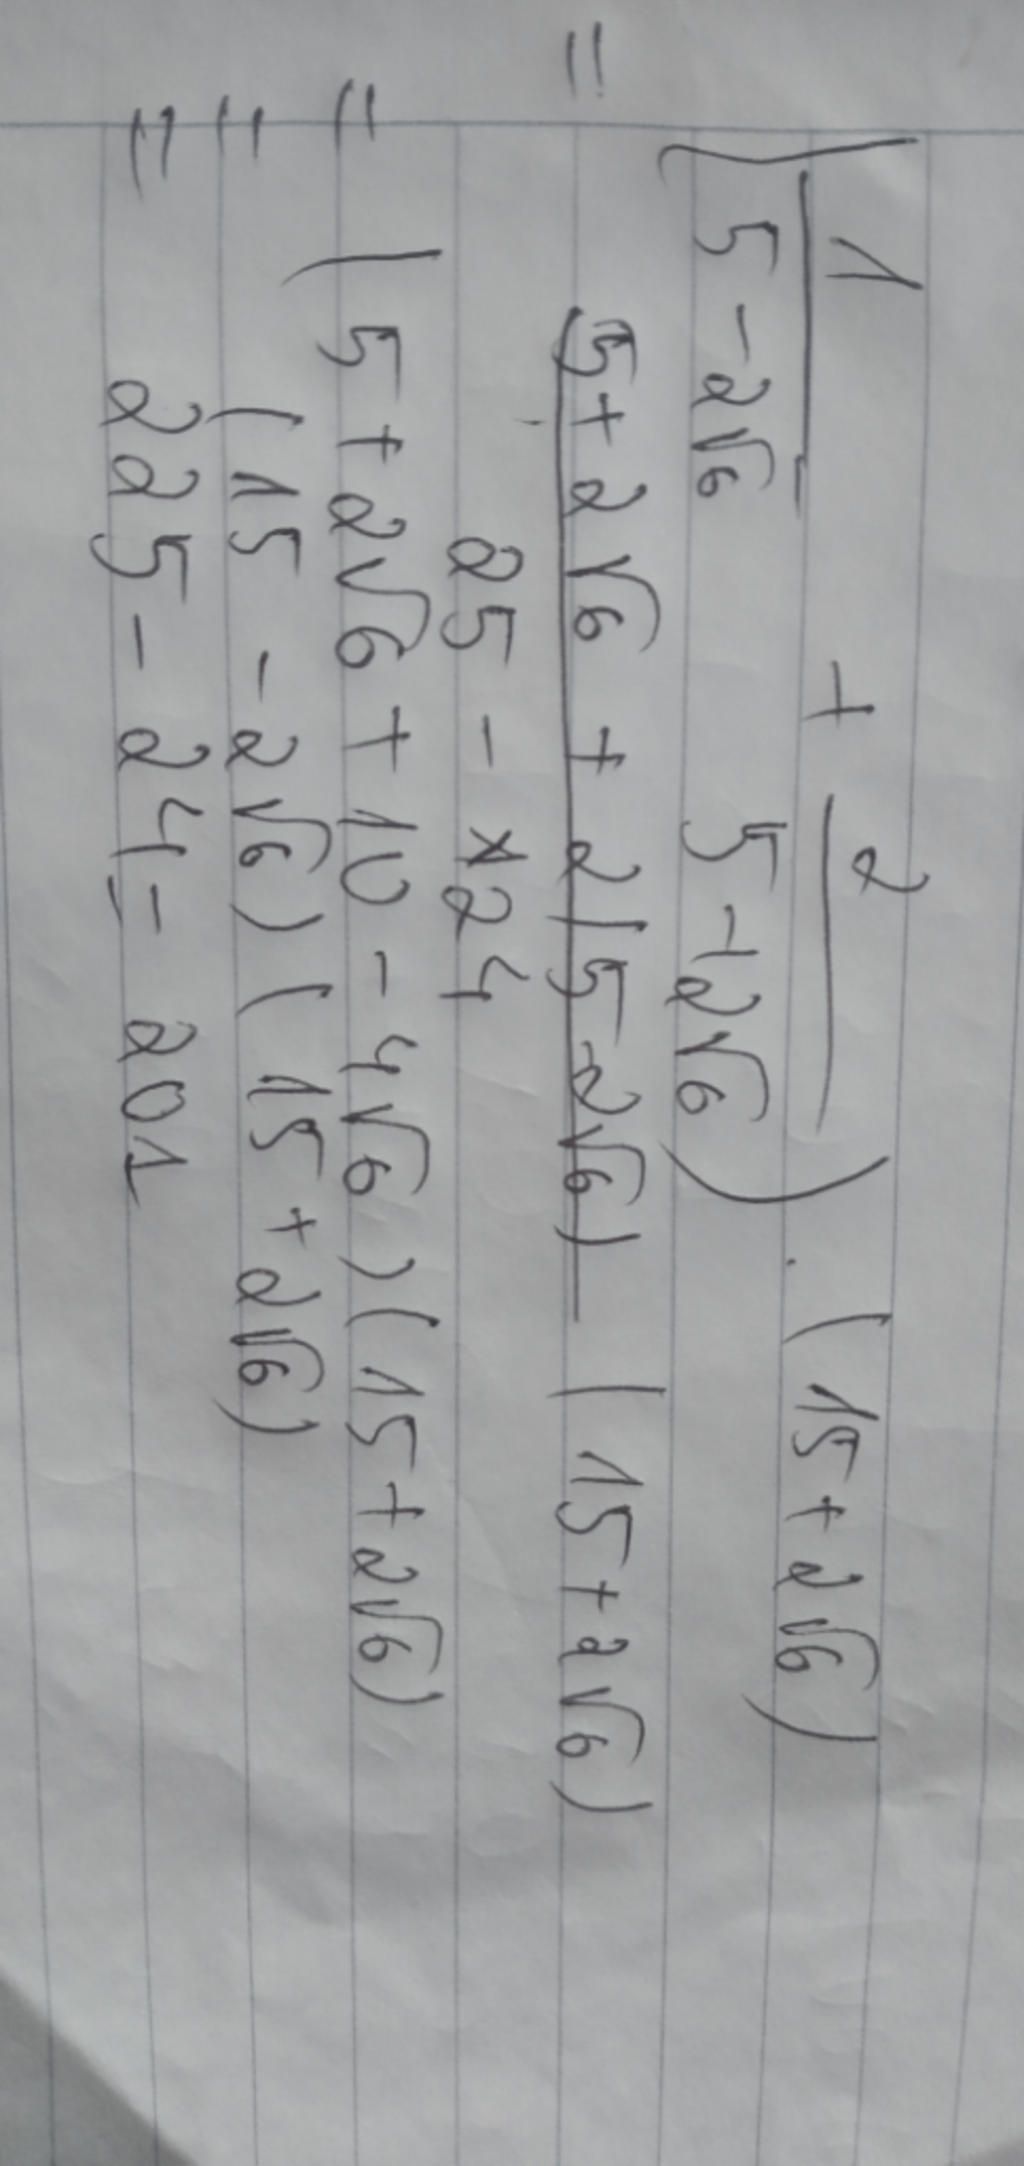 (1/(5 - 2√6) + 2/(5 + 2√6)) . (15 + 2√6)
= (5 + 2√6 + 2(5 - 2√6))/(25 - 24) (15 + 2√6)
= (5 + 2√6 + 10 - 4√6)(15 + 2√6)
= (15 - 2√6)(15 + 2√6)
= 225 - 24 = 201